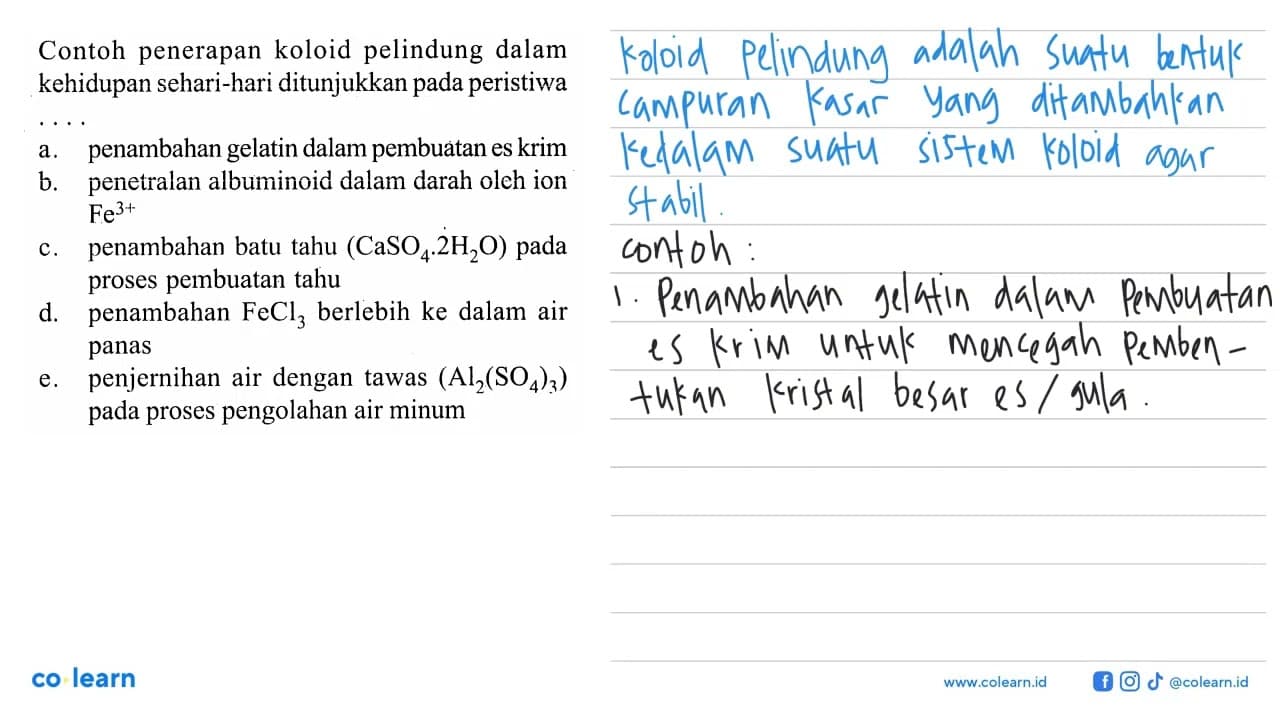 Contoh penerapan koloid pelindung dalam
kehidupan sehari-hari ditunjukkan pada peristiwa
. . . .
a. penambahan gelatin dalam pembuatan es krim
b. penetralan albuminoid dalam darah oleh ion
Fe³⁺
c. penambahan batu tahu (CaSO₄.2H₂O) pada
proses pembuatan tahu
d. penambahan FeCl₃ berlebih ke dalam air
panas
e. penjernihan air dengan tawas (Al₂(SO₄)₃)
pada proses pengolahan air minum
Koloid Pelindung adalah Suatu bentuk
Campuran Kasar yang ditambahkan
Kedalam suatu sistem Koloid agar
Stabil.
Contoh :
1. Penambahan gelatin dalam Pembuatan
es krim untuk mencegah Pemben-
tukan kristal besar es/gula.
co learn
www.colearn.id
@colearn.id